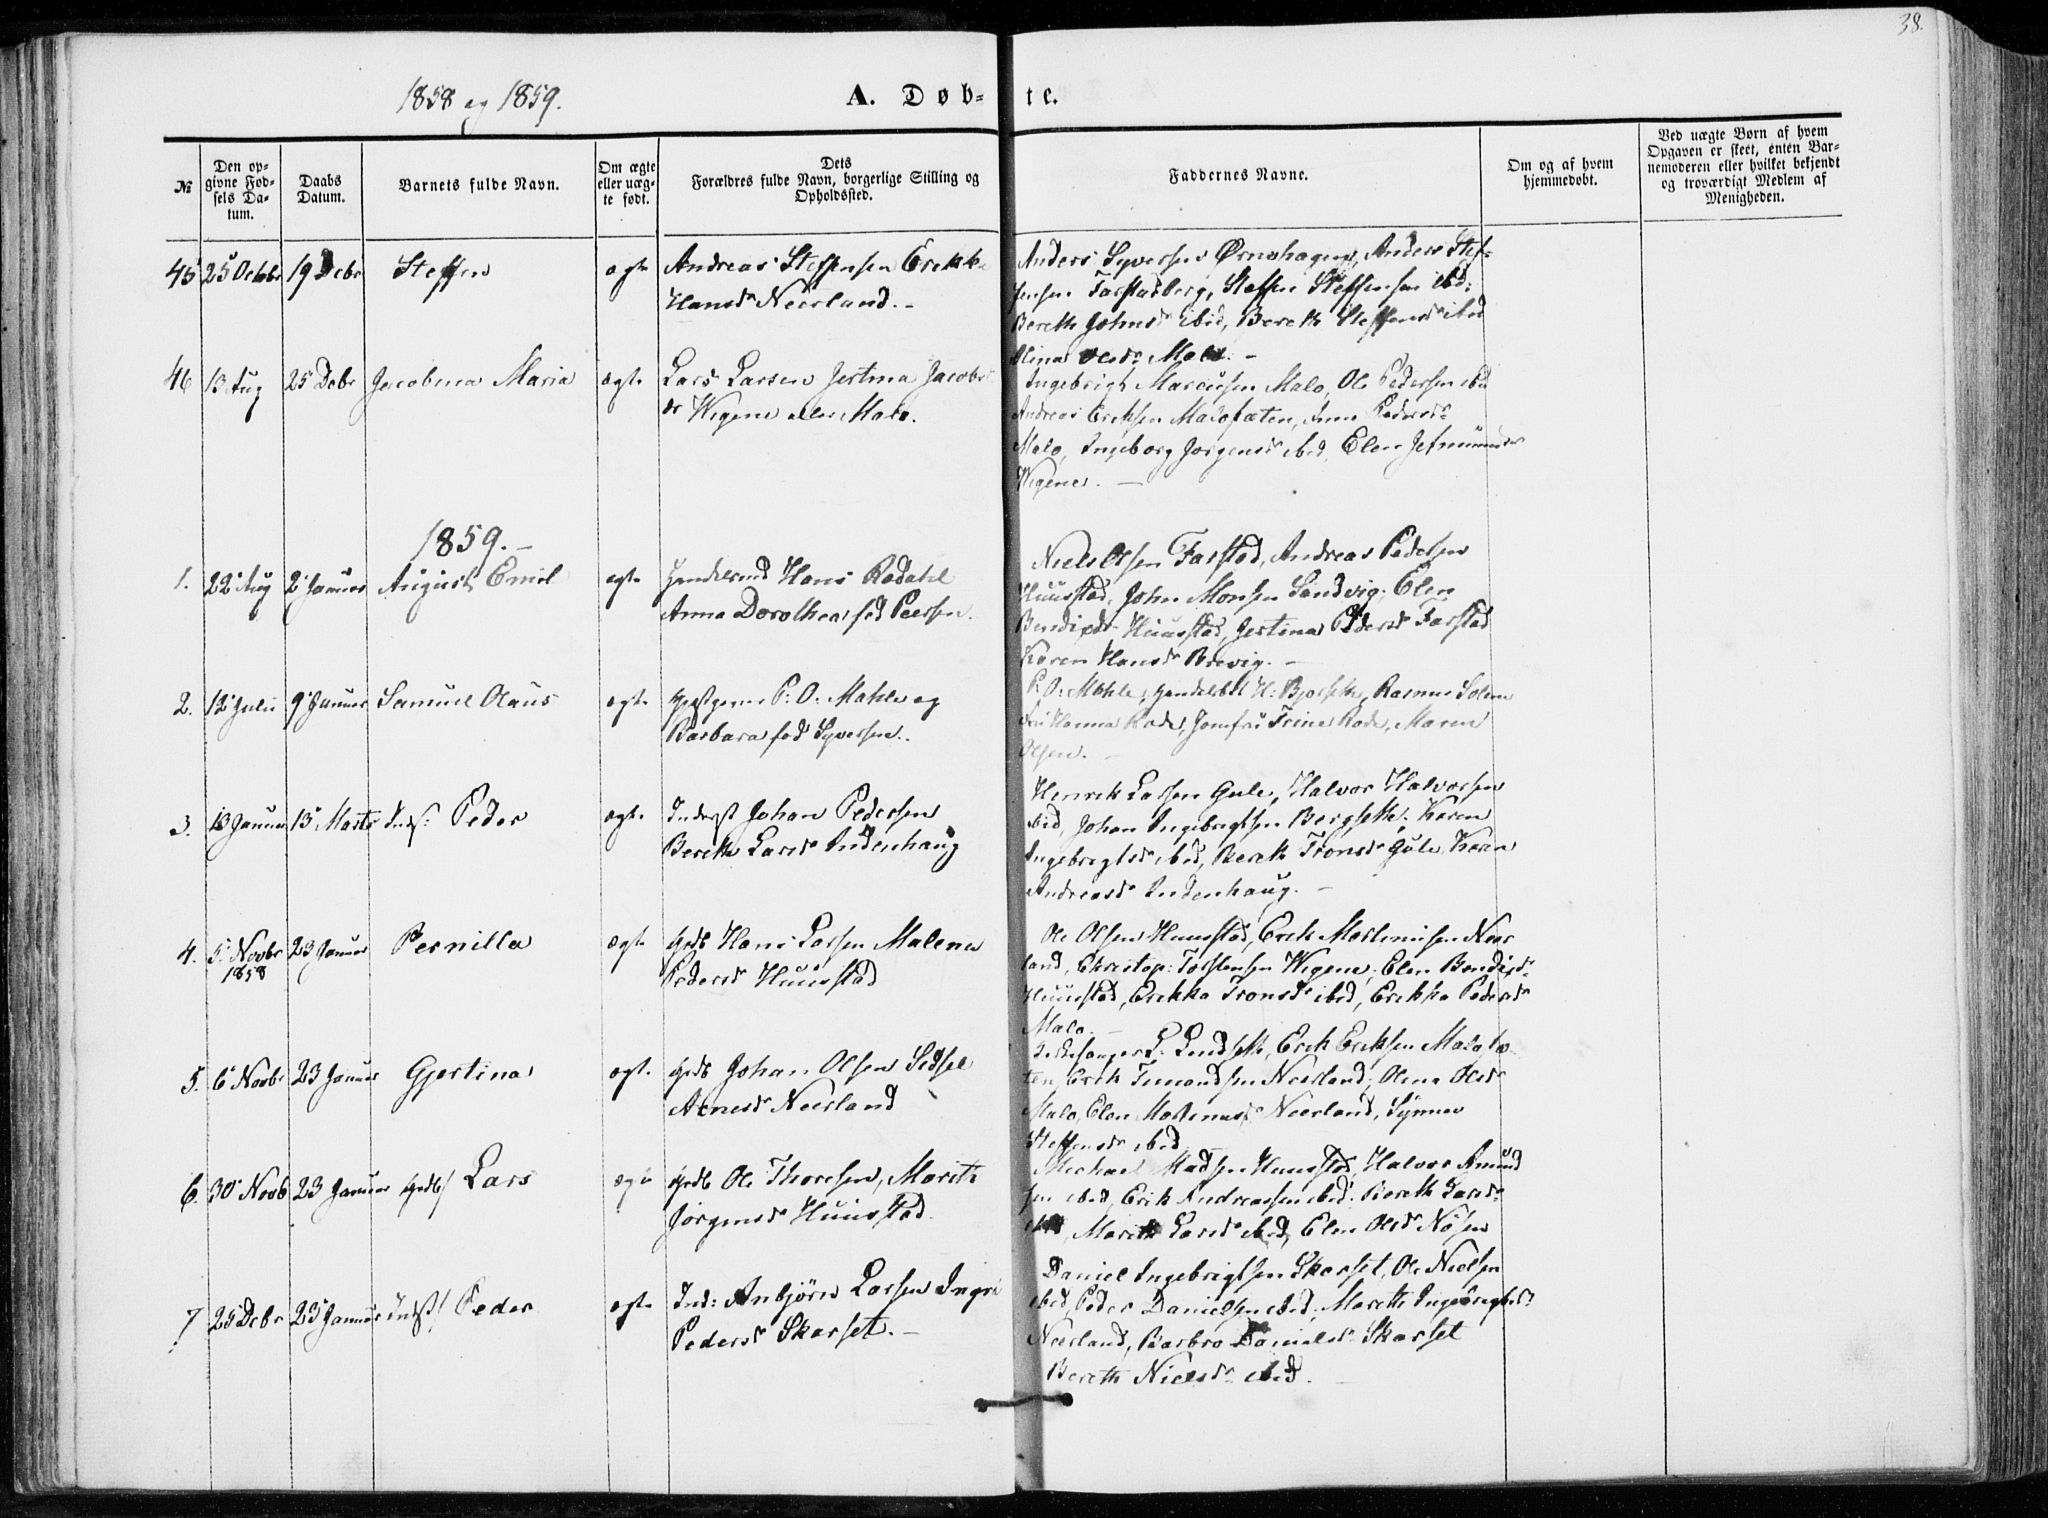 38.
1858 og 1859.
A. Døb-
te.
№
Den op-
givne Fød-
sels Da-
tum.
Daabs
Datum.
Barnets fulde Navn.
Om ægte
eller uæg-
te født.
Dets
Forældres fulde Navn, borgerlige Stilling og
Opholdssted.
Faddernes Navne.
Om og af hvem
hjemmedøbt.
Ved uægte Børn af hvem
Opgaven er skeet, enten Bar-
nemoderen eller hvilket bekjendt
og troværdigt Medlem af
Menigheden.
45 25 Octobr 19 Debr Steffen ægte Andreas Steffensen Erikke
Hansdr Neerland. -
Anders Syversen Ørnehagen, Anders Stef-
fensen Farstadberg, Steffen Steffensen ibd:
Bereth Johnsdr ibid, Bereth Steffensdr ibd
Olina Olesdr Malo. -
46 13 Aug 25 Debr Jacobina Maria ægte Lars Larsen Jertina Jacobs
dr Wigene eller Malo.
Ingebrigt Marcusen Malo, Ole Pedersen ibd
Andreas Eriksen Malofæten, Anne Pedersdr
Malo, Ingeborg Jørgensdr ibid, Elen Jetmundsdr
Wigene. -
1859. -
1. 22 Aug 2 Januar August Emil ægte Handelsmd Hans Rødahl
Anna Dorothea fød Peersen.
Niels Olsen Farstad, Andreas Pedersen
Huustad, John Monsen Sandvig, Elen
Bendixdr Huustad, Jertina Pedersdr Farstad
Karen Hansdr Brevig. -
2. 12 Juli 9 Januar Samuel Olaus ægte P: O: Mahle og
Barbara fød Syversen.
P. O. Mahle, Handelsbtl H: Bjerseth, Rasmus Solem
Hanna Rode, Jomfru Trine Rode, Maren
Olsen. -
3. 13 Januar 13 Marts Inds: Peder ægte Inderst Johan Pedersen
Bereth Larsdr Indenhaug
Henrik Larsen Gule, Halvor Halvorsen
ibid, Johan Ingebrigtsen Bergseth, Karen
Ingebrigtsdr ibid, Bereth Tronsdr Gule, Karen
Andreasdr Indenhaug. -
4. 5 Novbr 23 Januar Pernilla ægte Grdb Hans Larsen Malena
1858
Pedersdr Huustad
Ole Olsen Huustad, Erik Martinusen Neer
land, Christop: Torstensen Wigene, Elen Bendixdr
Huustad, Erikka Tronsdr ibid, Erikka Pedersdr
Malo. -
5. 6 Novbr 23 Januar Gjertina ægte Grdb Johan Olsen Sidsel
Arnesdr Neerland
Kirkesanger L. Lindseth, Erik Eriksen Malofæ-
ten, Erik Amundsen Neerland, Olina Olsdr
Malo, Elen Martinusdr Neerland, Synnev
Steffensdr ibid
6. 30 Novb 23 Januar Grdb/ Lars ægte Grdb Ole Thoresen, Marith
Jørgensdr Huustad.
Michael Madsen Huustad, Halvor Amund
sen ibid, Erik Andreassen ibid, Bereth Larsdr
ibid, Marith Larsdr ibid, Elen Olsdr Nøsen
7 25 Debr 23 Januar Inds/ Peder ægte Ind: Anbjørn Larsen Ingri
Pedersdr Skarset. -
Daniel Ingebrigtsen Skarset, Ole Nielsen
ibid, Peder Danielsen ibid, Mareth Ingebrigtsdr
Neerland, Barbro Danielsdr Skarset
Bereth Nielsdr ibid. -